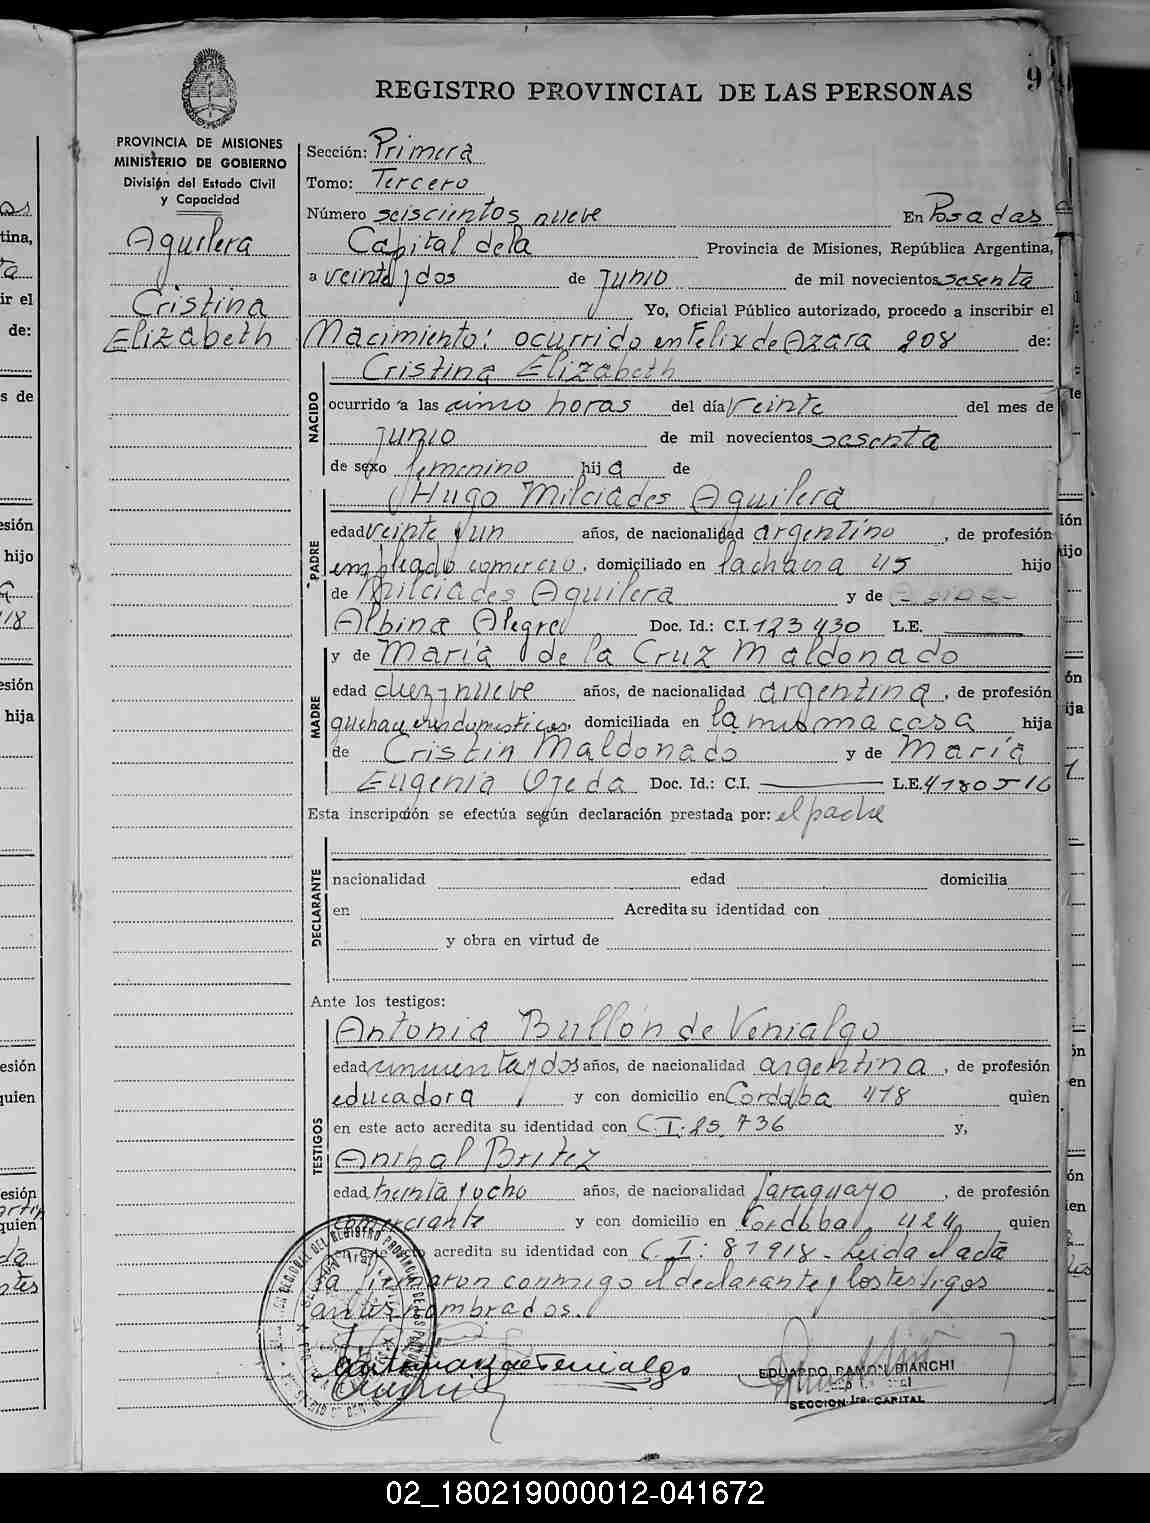 9
REGISTRO PROVINCIAL DE LAS PERSONAS
PROVINCIA DE MISIONES
MINISTERIO DE GOBIERNO
División del Estado Civil
y Capacidad
Aguilera
Cristina
Elizabeth
Sección: Primera
Tomo: Tercero
Número seiscientos nueve En Posadas
Capital de la Provincia de Misiones, República Argentina,
a veinte y dos de Junio de mil novecientos sesenta
Yo, Oficial Público autorizado, procedo a inscribir el
Nacimiento: ocurrido en Felix de Azara 208 de:
Cristina Elizabeth
NACIDO
ocurrido a las cinco horas del día veinte del mes de
Junio de mil novecientos sesenta
de sexo femenino hija de
PADRE
Hugo Milciades Aguilera
edad veinte y un años, de nacionalidad argentino, de profesión
empleado comercio, domiciliado en la chacra 45 hijo
de Milciades Aguilera y de
Albina Alegre Doc. Id.: C.I. 123430 L.E.
MADRE
y de María de la Cruz Maldonado
edad diez y nueve años, de nacionalidad argentina, de profesión
quehaceres domesticos, domiciliada en la misma casa hija
de Cristin Maldonado y de María
Eugenia Ojeda Doc. Id.: C.I. L.E. 4180516
Esta inscripción se efectúa según declaración prestada por: el padre
DECLARANTE
nacionalidad edad domicilia
en Acredita su identidad con
y obra en virtud de
Ante los testigos:
TESTIGOS
Antonia Bullón de Venialgo
edad cincuenta y dos años, de nacionalidad argentina, de profesión
educadora y con domicilio en Cordoba 418 quien
en este acto acredita su identidad con C.I: 25.736 y,
Anibal Britez
edad treinta y ocho años, de nacionalidad paraguayo, de profesión
comerciante y con domicilio en Cordoba 424 quien
acredita su identidad con C.I: 81918 - Leida el acta
la firmaron conmigo el declarante y los testigos
antes nombrados.
EDUARDO RAMON BIANCHI
SECCION 1ra. CAPITAL
02_180219000012-041672